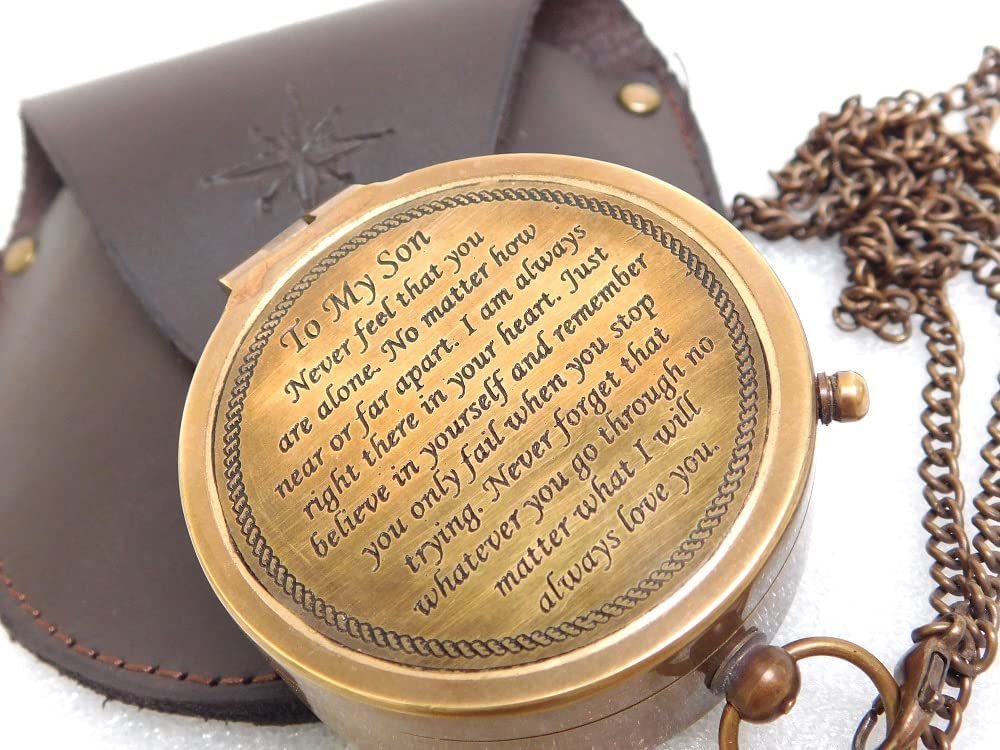 To My Son
Never feel that you
are alone. No matter how
near or far apart. I am always
right there in your heart. Just
believe in yourself and remember
you only fail when you stop
trying. Never forget that
whatever you go through no
matter what I will
always love you.